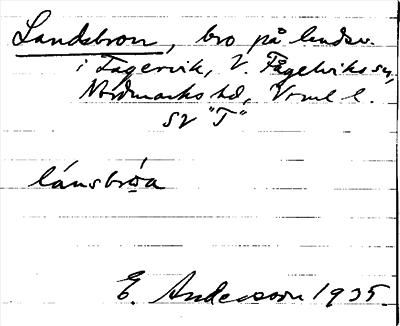 Landsbron, bro på landsv.
i Fagervik, V. Fågelviks sn,
Nordmarks hd, Vrml l.
SV "T"
lánsbrǫ́a
E. Andersson 1935